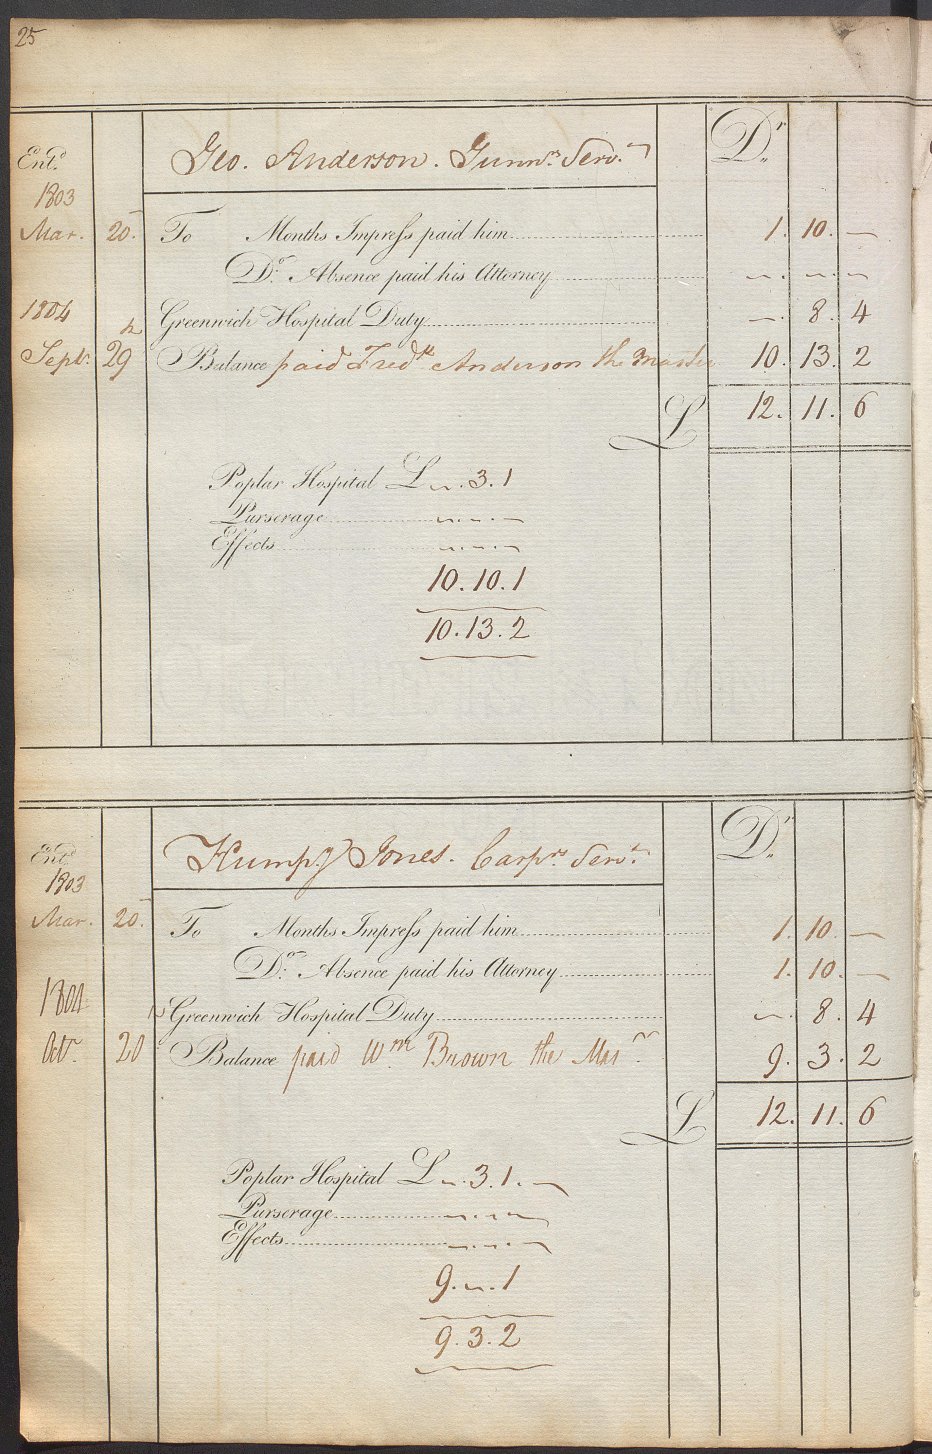 25
Ent.d Geo. Anderson. Gunn.rs Serv.t D.r
1803
Mar. 25. To Months Impress paid him 1. 10. —
D.o Absence paid his Attorney — . — . —
1804 Greenwich Hospital Duty — . 8. 4
Sept.r 29 Balance paid Fred.k Anderson the Master 10. 13. 2
L 12. 11. 6
Poplar Hospital L — . 3. 1
Purserage — . — . —
Effects — . — . —
10. 10. 1
10. 13. 2
Ent.d Humpy Jones. Carp.rs Serv.t D.r
1803
Mar. 25. To Months Impress paid him 1. 10. —
D.o Absence paid his Attorney 1. 10. —
1804 Greenwich Hospital Duty — . 8. 4
Oct.r 20 Balance paid W.m Brown the Mas.r 9. 3. 2
L 12. 11. 6
Poplar Hospital L — . 3. 1. —
Purserage — . — . —
Effects — . — . —
9. — . 1
9. 3. 2